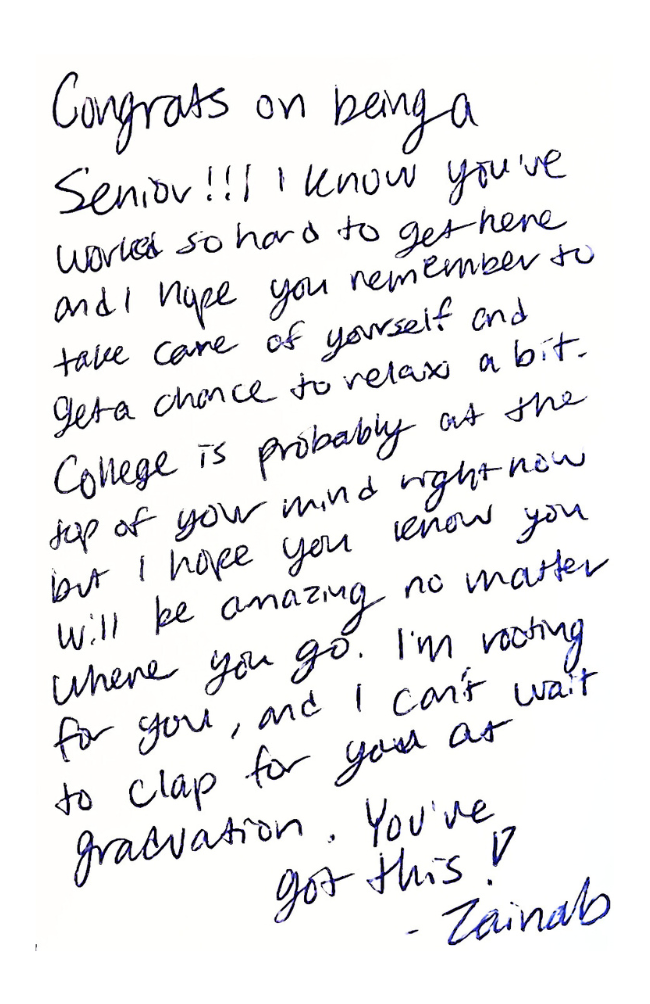 Congrats on being a
Senior!!! I know you've
worked so hard to get here
and I hope you remember to
take care of yourself and
get a chance to relax a bit.
College is probably at the
top of your mind right now
but I hope you know you
will be amazing no matter
where you go. I'm rooting
for you, and I can't wait
to clap for you at
graduation. You've
got this!
- Zainab